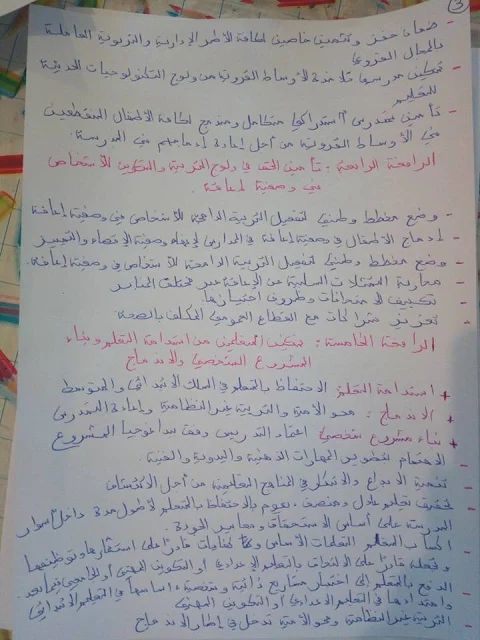 3
- ضمان حفز وتثمين خاصين لكافة الأطر الإدارية والتربوية العاملة
بالمجال القروي
- تمكين مدرسي تلامذة الأوساط القروية من ولوج التكنولوجيات الحديثة
للتعليم
- تأمين تمدرس استدراكي متكامل ومندمج لكافة الأطفال المنقطعين
في الأوساط القروية من أجل إعادة إدماجهم في المدرسة
الرافعة الرابعة: تأمين الحق في ولوج التربية والتكوين للأشخاص
في وضعية إعاقة.
- وضع مخطط وطني لتفعيل التربية الدامجة للأشخاص في وضعية إعاقة
- إدماج الأطفال في وضعية إعاقة في المدارس لإنهاء وضعية الإقصاء والتمييز
- وضع مخطط وطني لتفعيل التربية الدامجة للأشخاص في وضعية إعاقة.
- محاربة التمثلات السلبية عن الإعاقة عبر مختلف المنابر
- تكييف الامتحانات وظروف اجتيازها.
- تعزيز شراكات مع القطاع الحكومي المكلف بالصحة
الرافعة الخامسة: تمكين المتعلمين من استدامة التعلم وبناء
المشروع الشخصي والاندماج
+ استدامة التعلم: الاحتفاظ بالتعلم في السلك الابتدائي والمتوسط
+ الاندماج: محو الأمية والتربية غير النظامية وإعادة التمدرس
+ بناء مشروع شخصي اعتماد التدريس وفق بيداغوجيا المشروع
- الاهتمام بتطوير المهارات الذهنية واليدوية والفنية
- تنمية الإبداع والابتكار في المناهج التعليمية من أجل الاكتشاف
- لتحقيق تعليم عادل ومنصف، نقوم بالاحتفاظ بالمتعلم لأطول مدة داخل أسوار
المدرسة على أساس الاستحقاق ومعايير الجودة.
- اكتساب المتعلم التعلمات الأساس وكذا كفايات قادرا على استثمارها وتوظيفها
وجعله قادرا على الالتحاق بالتعليم الإعدادي أو التكوين المهني أو الجامعي فيما بعد
- الدفع بالمتعلم إلى اختيار مشاريع ذاتية وشخصية، أساسها في التعليم الابتدائي
وامتدادها في التعليم الإعدادي أو التكوين المهني
- التربية غير النظامية ومحو الأمية تدخل في إطار الاندماج